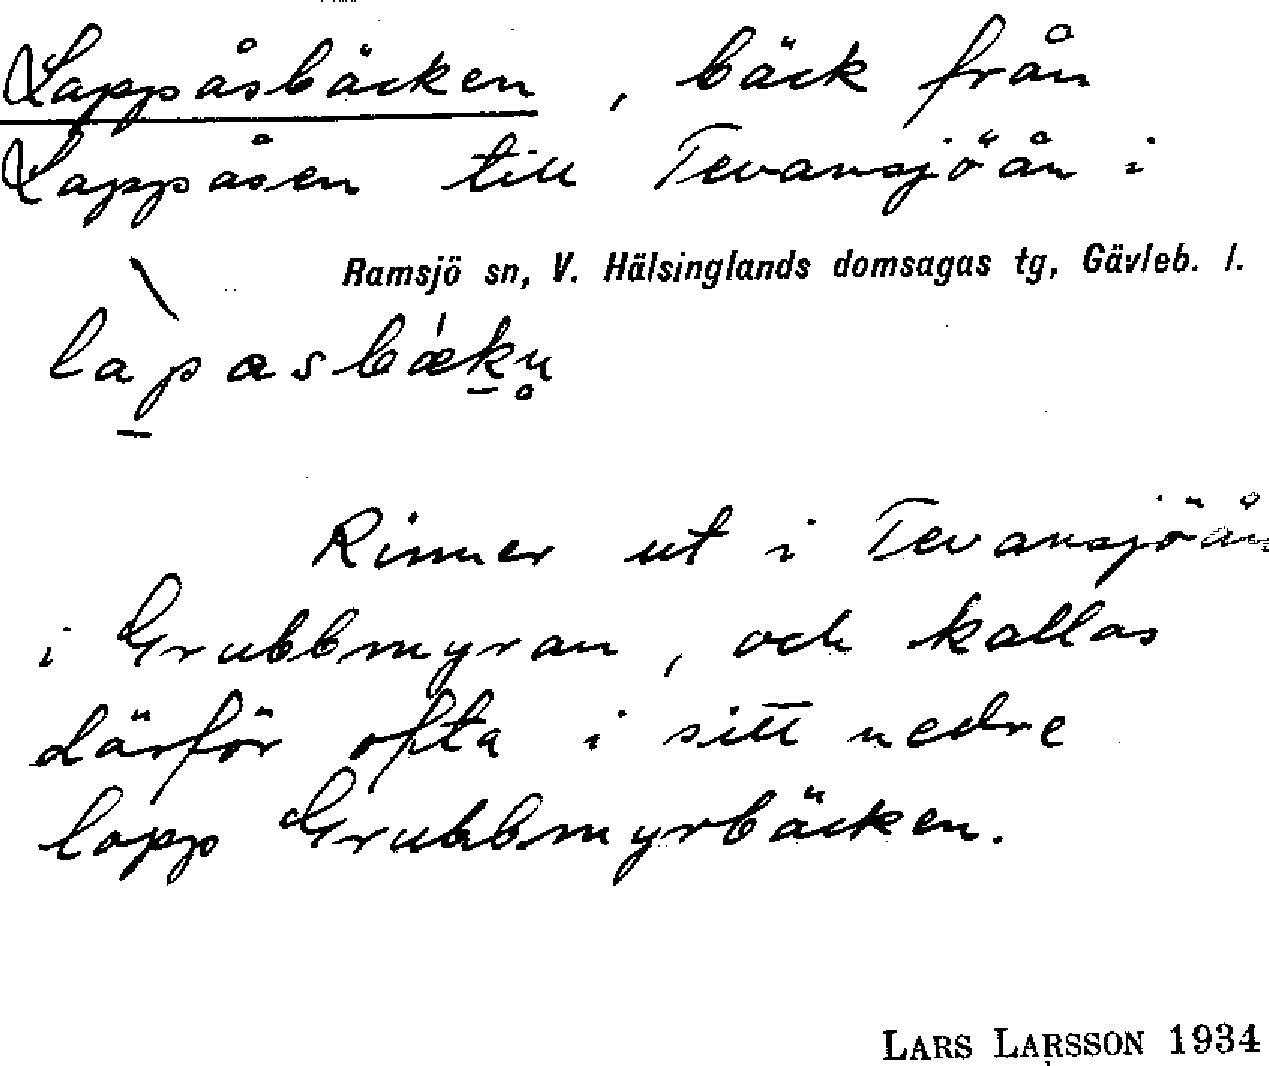 Lappåsbäcken, bäck från
Lappåsen till Tevansjöån i
Ramsjö sn, V. Hälsinglands domsagas tg, Gävleb. l.
Rinner ut i Tevansjöån
i Grubbmyran, och kallas
därför ofta i sitt nedre
lopp Grubbmyrbäcken.
LARS LARSSON 1934